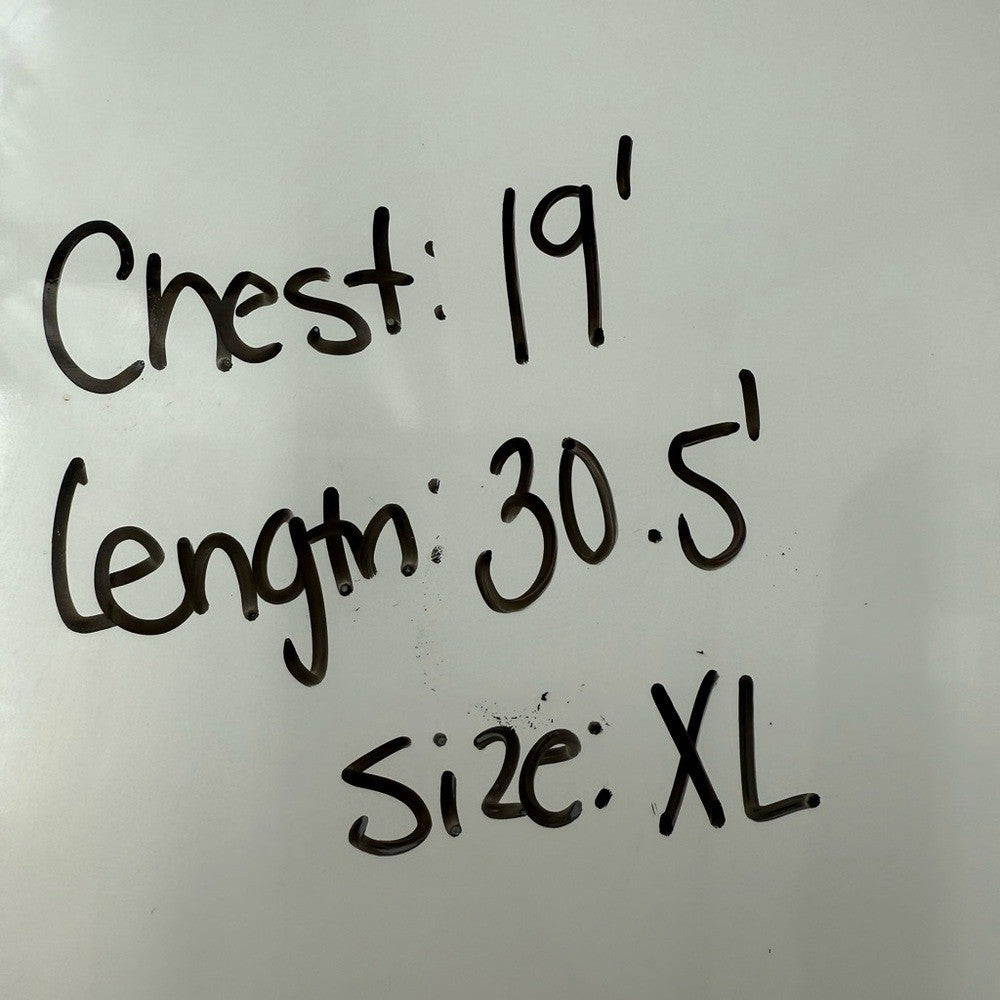 Chest: 19'
Length: 30.5'
Size: XL